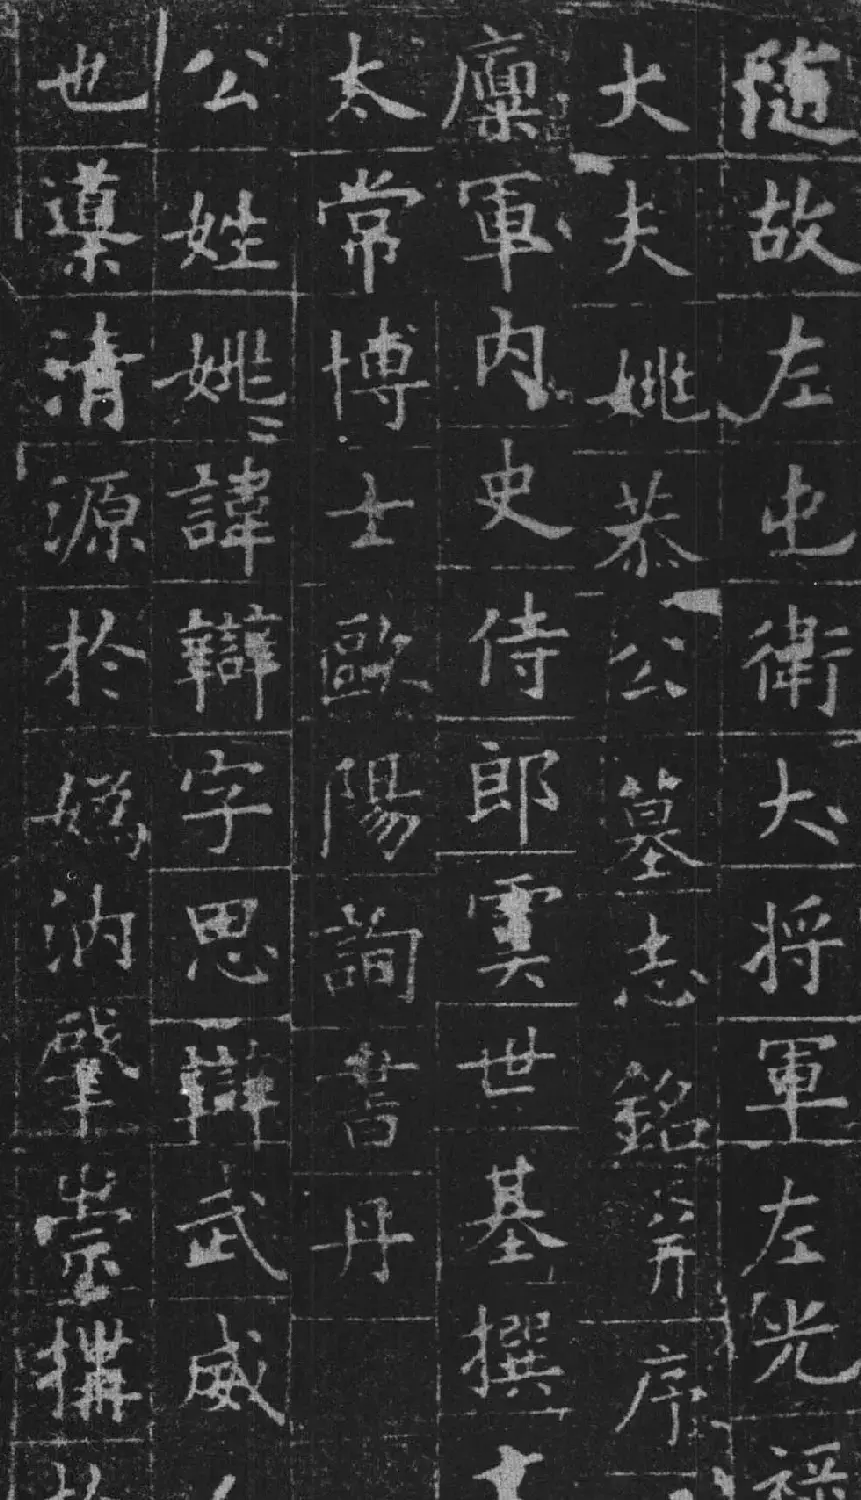 随故左屯衛大將軍左光祿
大夫姚恭公墓志銘并序
廩軍内史侍郎虞世基撰
太常博士歐陽詢書丹
公姓姚〻諱辯字思辯武威
也導清源於媯汭肇崇構